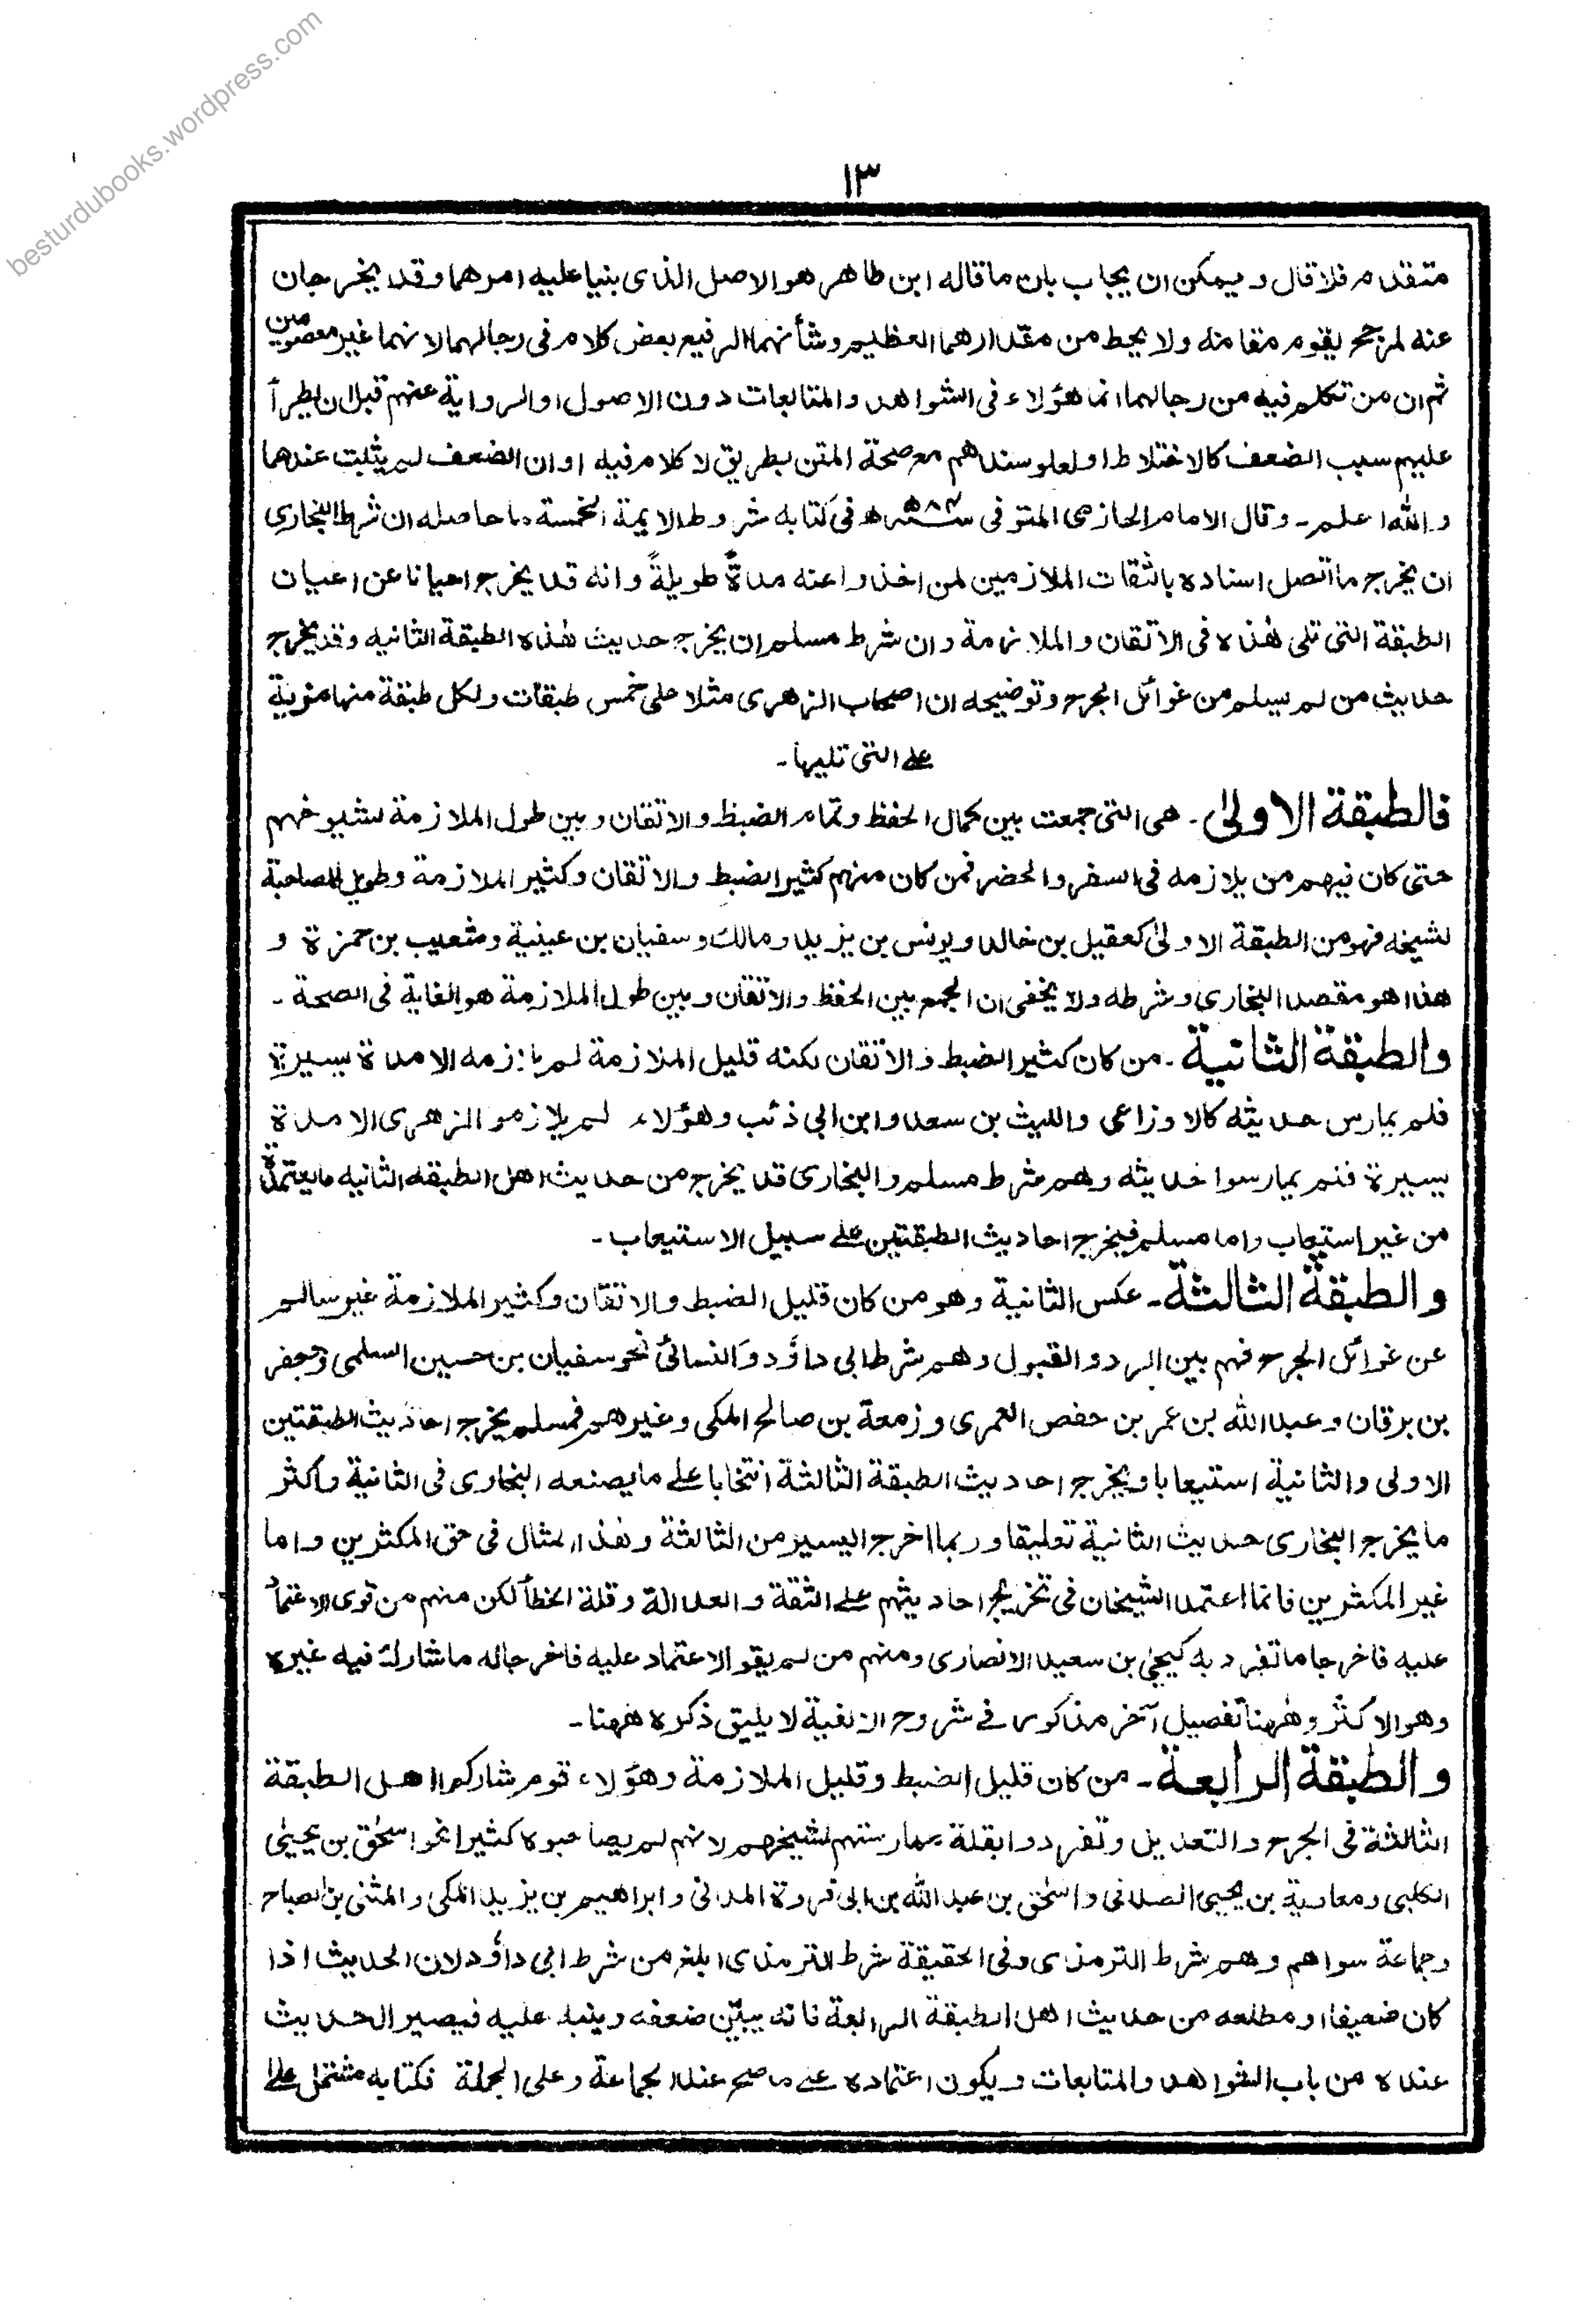 besturdubooks.wordpress.com
١٣
متقدم فلا قال ويمكن ان يجاب بان ما قاله ابن طاهر هو الاصل الذى بنيا عليه امرهما وقد يخرجان
عنه لمرجح يقوم مقامه ولا يحط من مقدارهما العظيم وشأنهما الرفيع بعض كلام فى رجالهما لانهما غير معصومين
ثم ان من تكلم فيه من رجالهما انما هؤلاء فى الشواهد والمتابعات دون الاصول او الرواية عنهم قبل ان يطرأ
عليهم سبب الضعف كالاختلاط او لعلو سندهم مع صحة المتن بطريق لا كلام فيه او ان الضعف لم يثبت عندهما
والله اعلم۔ وقال الامام الحازمى المتوفى ٥٨٤ھ فى كتابه شروط الايمة الخمسة ما حاصله ان شرط البخارى
ان يخرج ما اتصل اسناده بالثقات الملازمين لمن اخذوا عنه مدةً طويلةً وانه قد يخرج احيانا عن اعيان
الطبقة التى تلى هٰذه فى الاتقان والملازمة وان شرط مسلم ان يخرج حديث هٰذه الطبقة الثانيه وقد يخرج
حديث من لم يسلم من غوائل الجرح وتوضيحه ان اصحاب الزهرى مثلا على خمس طبقات ولكل طبقة منها مزية
على التى تليها۔
فالطبقة الاولىٰ۔ هى التى جمعت بين كمال الحفظ وتمام الضبط والاتقان وبين طول الملازمة لشيوخهم
حتى كان فيهم من يلازمه فى السفر والحضر فمن كان منهم كثير الضبط والاتقان وكثير الملازمة وطويل المصاحبة
لشيخه فهو من الطبقة الاولىٰ كعقيل بن خالد ويونس بن يزيد ومالك وسفيان بن عيينة وشعيب بن حمزة و
هذا هو مقصد البخارى وشرطه ولا يخفى ان الجمع بين الحفظ والاتقان وبين طول الملازمة هو الغاية فى الصحة۔
والطبقة الثانية۔ من كان كثير الضبط والاتقان لكنه قليل الملازمة لم يلازمه الا مدة يسيرة
فلم يمارس حديثه كالاوزاعى والليث بن سعد وابن ابى ذئب وهؤلاء لم يلازمو الزهرى الا مدة
يسيرة فلم يمارسوا حديثه وهم شرط مسلم والبخارى قد يخرج من حديث اهل الطبقه الثانيه ما يعتمدهٗ
من غير استيعاب واما مسلم فيخرج احاديث الطبقتين على سبيل الاستيعاب۔
والطبقة الثالثة۔ عكس الثانية وهو من كان قليل الضبط والاتقان وكثير الملازمة غير سالم
عن غوائل الجرح فهم بين الرد والقبول وهم شرط ابى داؤد والنسائى نحو سفيان بن حسين السلمى وجعفر
بن برقان وعبد الله بن عمر بن حفص العمرى وزمعة بن صالح المكى وغيرهم فمسلم يخرج احاديث الطبقتين
الاولى والثانية استيعابا ويخرج احاديث الطبقة الثالثة انتخابا على ما يصنعه البخارى فى الثانية واكثر
ما يخرج البخارى حديث الثانية تعليقا وربما اخرج اليسير من الثالثة وهٰذا المثال فى حق المكثرين واما
غير المكثرين فانما اعتمد الشيخان فى تخريج احاديثهم على الثقة والعدالة وقلة الخطأ لكن منهم من قوى الاعتماد
عليه فاخرجا ما تفرد به كيحيىٰ بن سعيد الانصارى ومنهم من لم يقو الاعتماد عليه فاخرجا له ما شارك فيه غيره
وهو الاكثر وهٰهنا تفصيل آخر مذكور فى شروح الالفية لا يليق ذكره ههنا۔
والطبقة الرابعة۔ من كان قليل الضبط وقليل الملازمة وهؤلاء قوم شاركوا اهل الطبقة
الثالثة فى الجرح والتعديل وتفردوا بقلة ممارستهم لشيخهم لانهم لم يصاحبوه كثيرا نحو اسحٰق بن يحيىٰ
الكلبى ومعاوية بن يحيى الصدفى واسحٰق بن عبد الله بن ابى فروة المدنى وابراهيم بن يزيد المكى والمثنى بن الصباح
وجماعة سواهم وهم شرط الترمذى وفى الحقيقة شرط الترمذى ابلغ من شرط ابى داؤد لان الحديث اذا
كان ضعيفا او مطلعه من حديث اهل الطبقة الرابعة فانه يبيّن ضعفه وينبه عليه فيصير الحديث
عنده من باب الشواهد والمتابعات ويكون اعتماده على ما صح عند الجماعة وعلى الجملة فكتابه مشتمل على